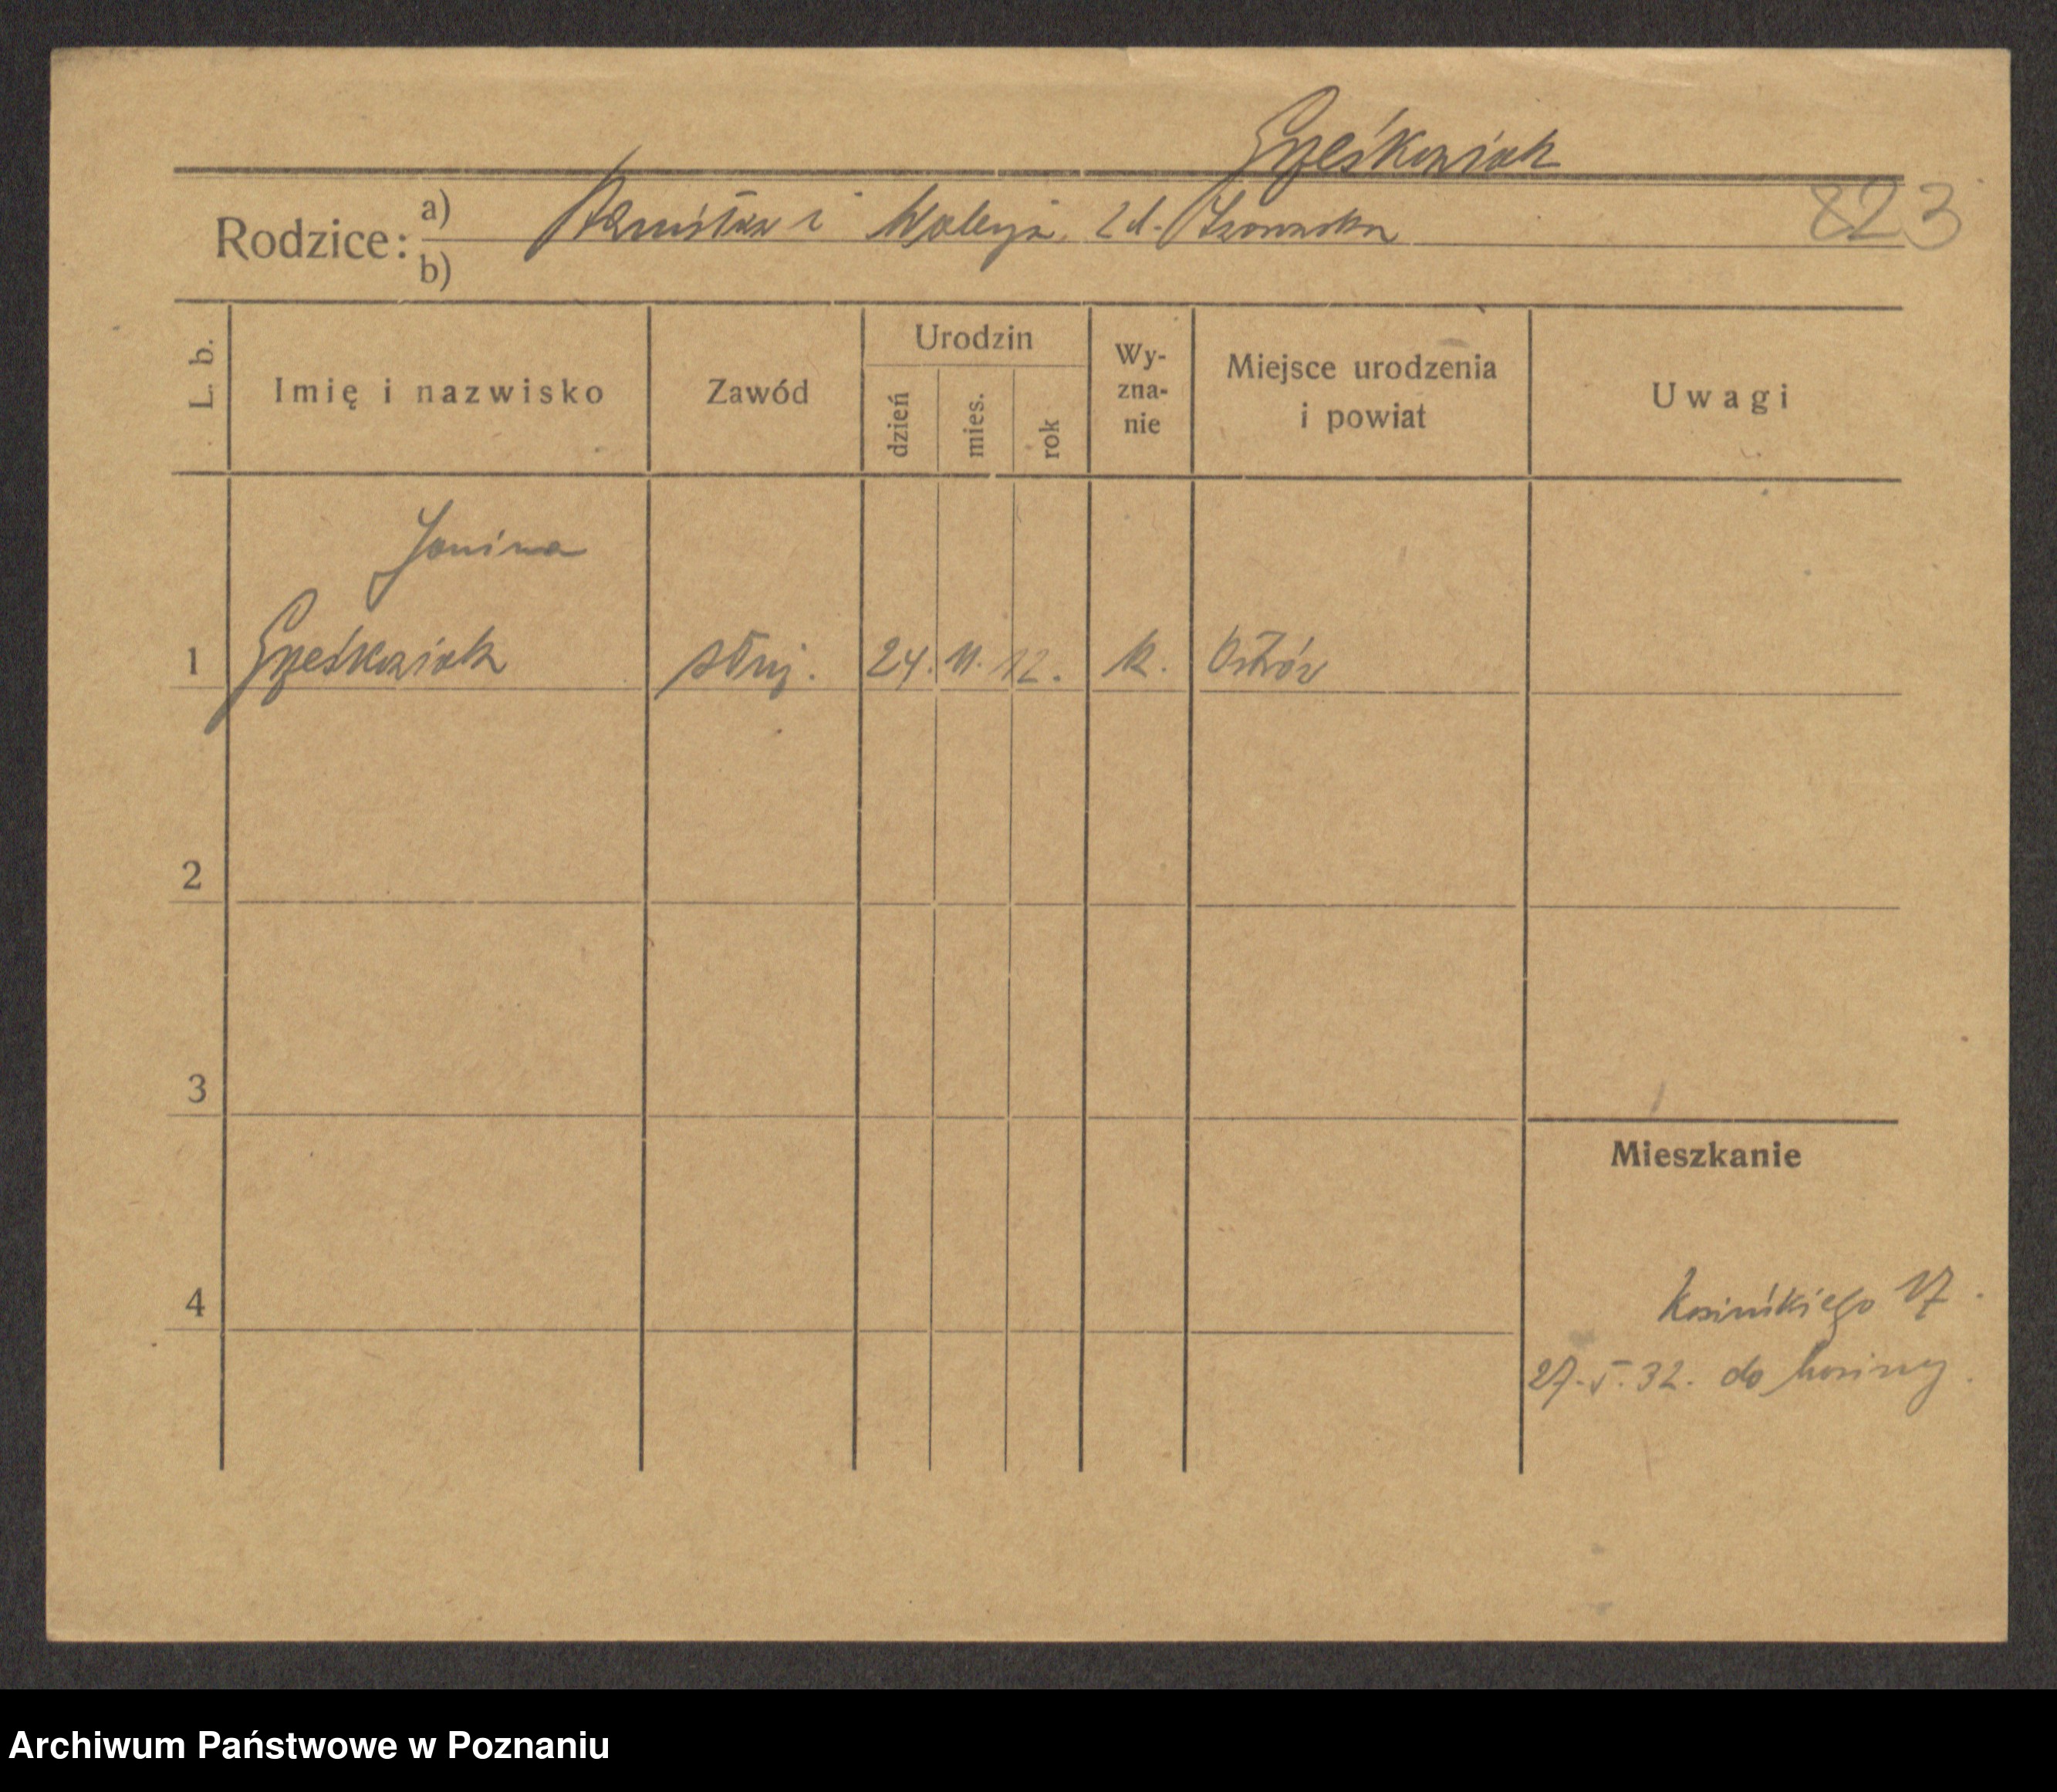 Grześkowiak
Rodzice: a) Stanisław i Waleryja, zd. 823
b)
L. b. Imię i nazwisko Zawód Urodzin dzień mies. rok Wy-zna-nie Miejsce urodzenia i powiat Uwagi
Janina
1 Grześkowiak służ. 24. 11. 12. k. Ostrów
2
3
Mieszkanie
4
Kosińskiego 17.
27. V. 32. do
Archiwum Państwowe w Poznaniu